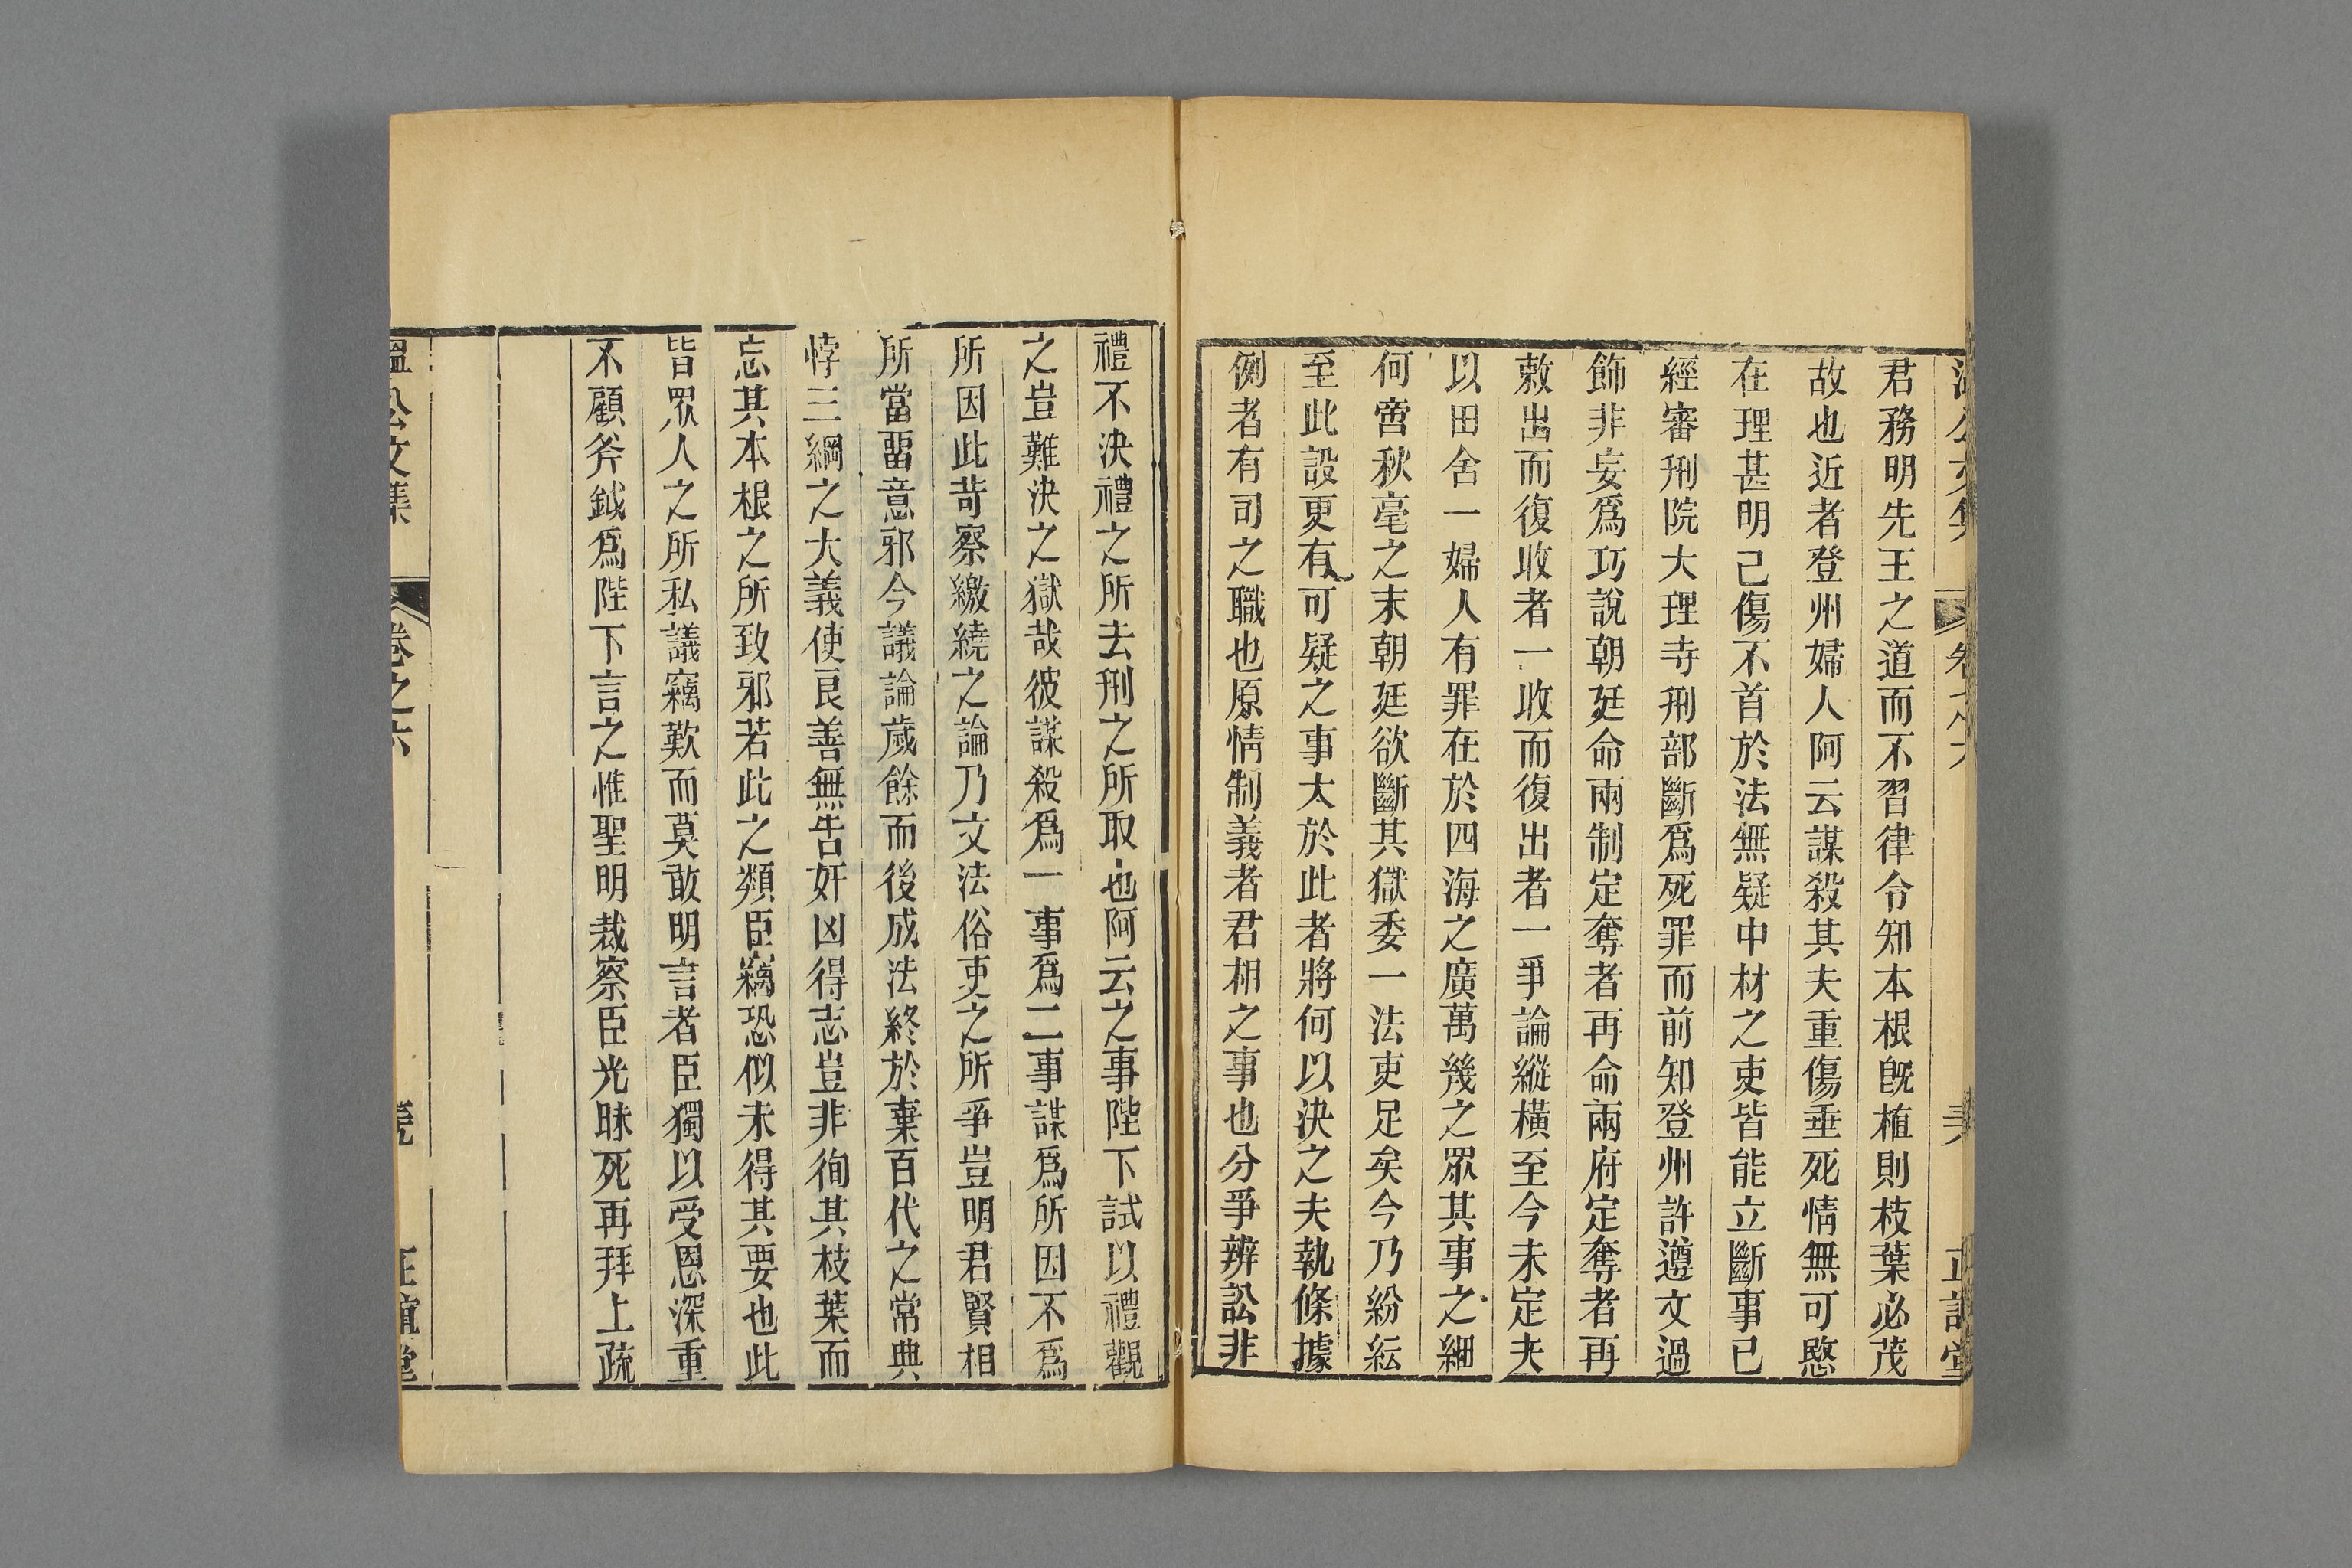 君務明先王之道而不習律令知本根旣植則枝葉必茂
故也近者登州婦人阿云謀殺其夫重傷垂死情無可愍
在理甚明已傷不首於法無疑中材之吏皆能立斷事已
經審刑院大理寺刑部斷爲死罪而前知登州許遵文過
飾非妄爲巧說朝廷命兩制定奪者再命兩府定奪者再
敕出而復收者一收而復出者一爭論縱橫至今未定夫
以田舍一婦人有罪在於四海之廣萬幾之眾其事之細
何啻秋毫之末朝廷欲斷其獄委一法吏足矣今乃紛紜
至此設更有可疑之事大於此者將何以決之夫執條據
例者有司之職也原情制義者君相之事也分爭辨訟非
禮不決禮之所去刑之所取也阿云之事陛下試以禮觀
之豈難決之獄哉彼謀殺爲一事爲二事謀爲所因不爲
所因此苛察繳繞之論乃文法俗吏之所爭豈明君賢相
所當畱意邪今議論歲餘而後成法終於棄百代之常典
悖三綱之大義使良善無告奸凶得志豈非徇其枝葉而
忘其本根之所致邪若此之類臣竊恐似未得其要也此
皆眾人之所私議竊歎而莫敢明言者臣獨以受恩深重
不顧斧鉞爲陛下言之惟聖明裁察臣光昧死再拜上疏
溫公文集 卷之六 正誼堂